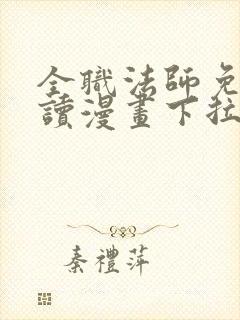 全職法師免
讀漫畫下拉
秦禮萍